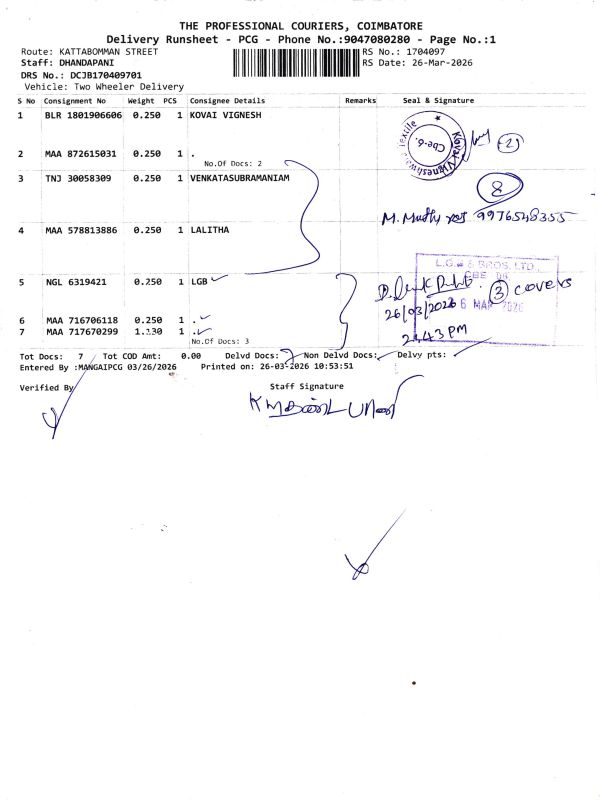 THE PROFESSIONAL COURIERS, COIMBATORE
Delivery Runsheet - PCG - Phone No.:9047080280 - Page No.:1
Route: KATTABOMMAN STREET RS No.: 1704097
Staff: DHANDAPANI RS Date: 26-Mar-2026
DRS No.: DCJB170409701
Vehicle: Two Wheeler Delivery
S No Consignment No Weight PCS Consignee Details Remarks Seal & Signature
1 BLR 1801906606 0.250 1 KOVAI VIGNESH
Cbe-6.
2 MAA 872615031 0.250 1 .
(2)
No.Of Docs: 2
3 TNJ 30058309 0.250 1 VENKATASUBRAMANIAM
8
9976548355
4 MAA 578813886 0.250 1 LALITHA
L.G. & BROS. LTD.,
5 NGL 6319421 0.250 1 LGB
3 covers
26/03/2026
6 MAR 2026
6 MAA 716706118 0.250 1 .
7 MAA 717670299 1.130 1 .
2:43 PM
No.Of Docs: 3
Tot Docs: 7 Tot COD Amt: 0.00 Delvd Docs: Non Delvd Docs: Delvy pts:
Entered By :MANGAIPCG 03/26/2026 Printed on: 26-03-2026 10:53:51
Verified By Staff Signature